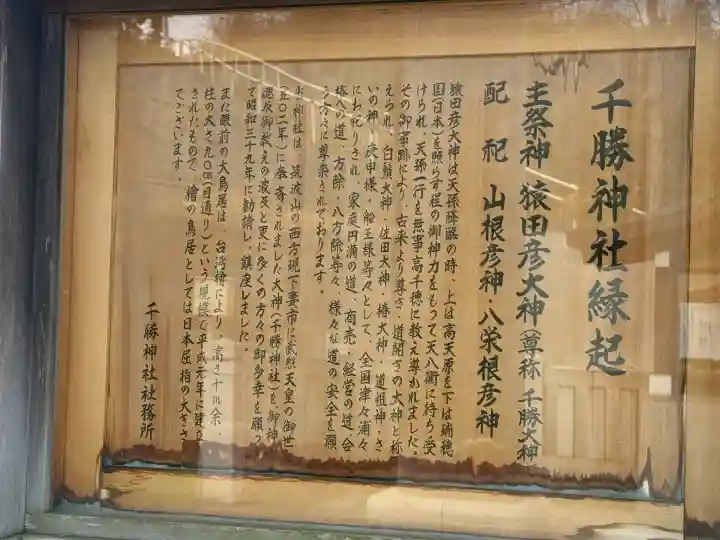 千勝神社縁起
主祭神 猿田彦大神(尊称 千勝大神)
配祀 山根彦神・八栄根彦神
猿田彦大神は天孫降臨の時、上は高天原を下は瑞穂
国(日本)を照らす程の御神力をもって天八衢に待ち受
けられ、天孫一行を無事高千穂に教え導かれました。
その御事跡により、古来より尊き、道開きの大神と称
えられ、白鬚大神・佐田大神・椿大神・道祖神・さ
いの神・庚申様・船玉様等々として、全国津々浦々
にお祀りされ、家庭円満の道、商売・経営の道、合
格への道、方除・八方除等々、様々な道の安全を願
う方々に尊崇されております。
当神社は、筑波山の西方現下妻市に武烈天皇の御世
(五〇二年)に奉斎されました大神(千勝神社)を御神
慮及御教えの波及と更に多くの方々の御多幸を願っ
て昭和三十九年に勧請し、鎮座しました。
また眼前の大鳥居は、台湾檜により、高さ十m余・
柱の太さ九〇cm(目通り)という規模で平成元年に建立
されたもので、檜の鳥居としては日本屈指の大きさ
でございます。
千勝神社社務所